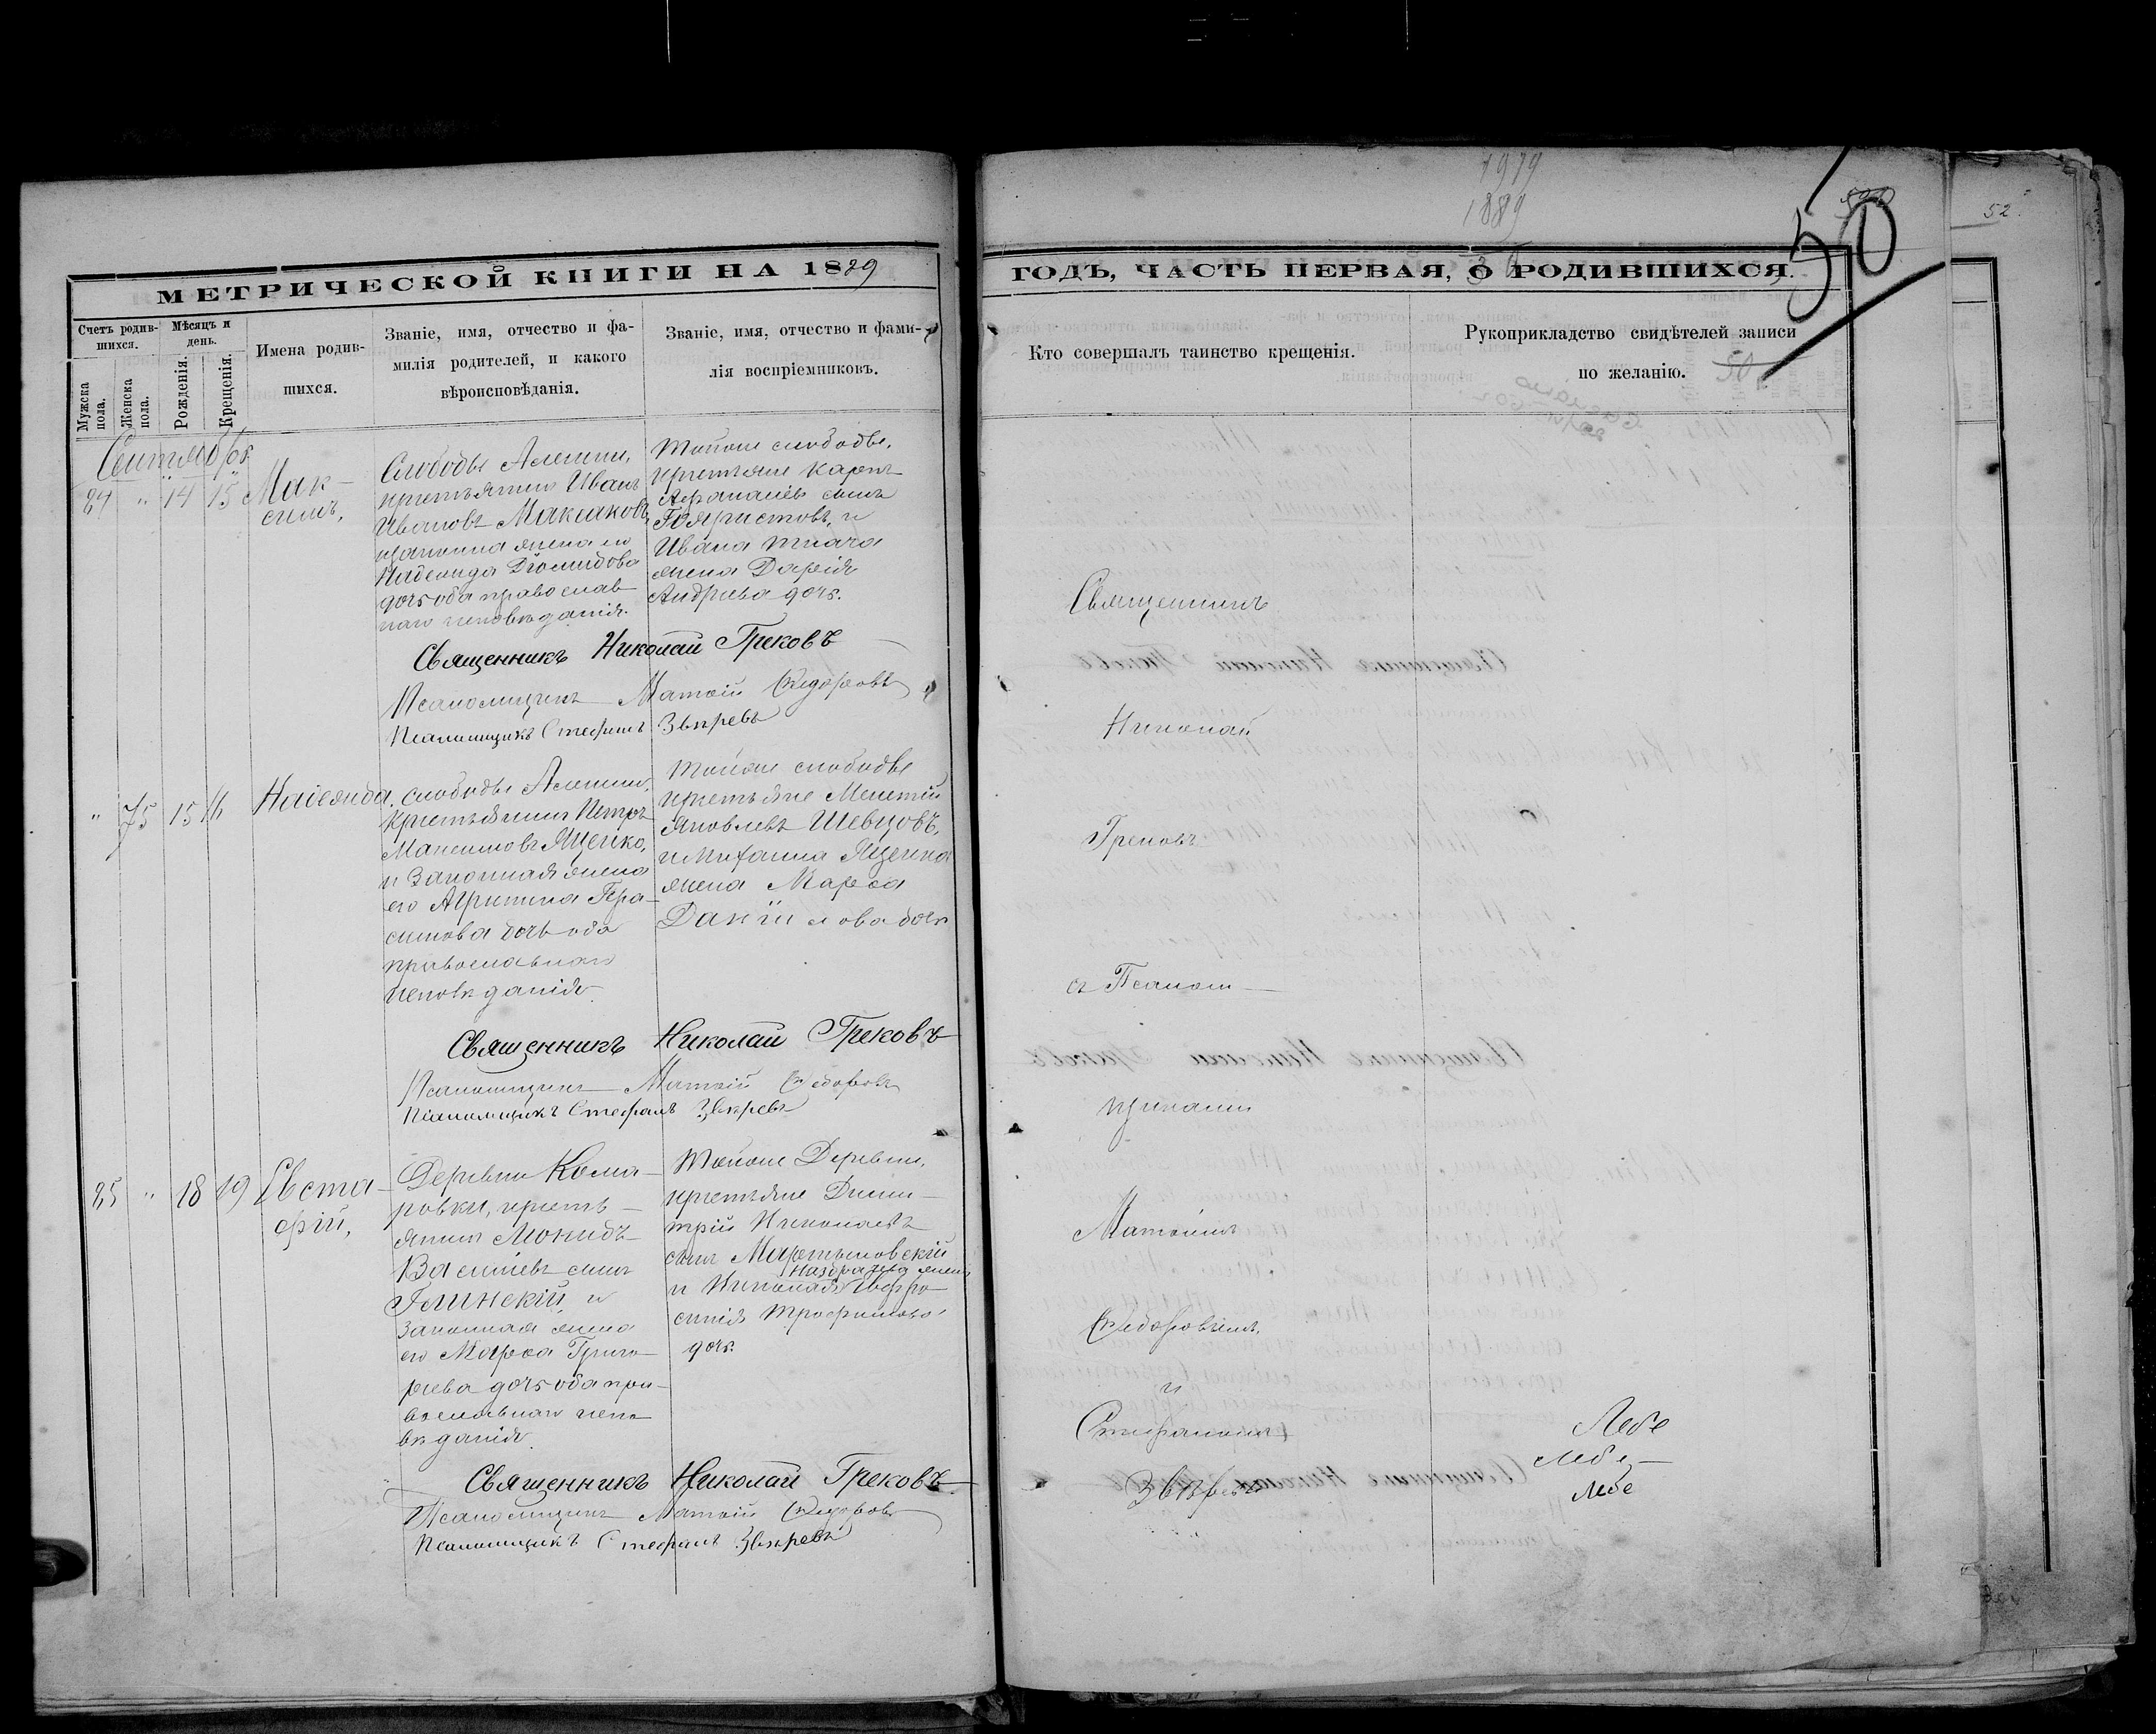 1919
1889
50
52
50
МЕТРИЧЕСКОЙ КНИГИ НА 1889
ГОДЪ, ЧАСТЬ ПЕРВАЯ, О РОДИВШИХСЯ.
Счетъ родившихся.
Мужска пола.
Женска пола.
Мѣсяцъ и день.
Рожденія.
Крещенія.
Имена родив-
шихся.
Званіе, имя, отчество и фа-
милія родителей, и какого
вѣроисповѣданія.
Званіе, имя, отчество и фами-
лія воспріемниковъ.
Кто совершалъ таинство крещенія.
Рукоприкладство свидѣтелей записи
по желанію.
Сентябрь
84 " 14 15
Мак-
симъ,
Слободы
крестьянинъ Иванъ
Ивановъ Максаковъ,
законная жена его
Надежда Діомидова
дочь оба православ
наго исповѣданія.
Тойже слободы,
крестьяне Карпъ
Афанасіевъ сынъ
и
Ивана Ткача
жена Дарія
Андреева дочь.
Священникъ Николай Грековъ
Псаломщикъ Матѳій Ѳедоровъ
Псаломщикъ Стефанъ Звѣревъ
" 75 15 16
Надежда.
Слободы
крестьянинъ Петръ
Максимовъ Яценко,
и законная жена
его Агрипина Гера-
симова дочь оба
православнаго
исповѣданія.
Тойже слободы
крестьяне Мелетій
Яковлевъ Шевцовъ,
и Михаила Яценка
жена Марѳа
Даніилова дочь
Священникъ Николай Грековъ
Псаломщикъ Матѳій Ѳедоровъ
Псаломщикъ Стефанъ Звѣревъ
85 " 18 19
Евста-
фій,
Деревни Кома-
ровки, кресть-
янинъ
Василіевъ сынъ
Глинскій и
законная жена
его Марѳа Григо-
рьева дочь оба пра-
вославнаго испо-
вѣданія.
Тойже Деревни,
крестьяне Дими-
трій Николаевъ
сынъ Мартыновскій
и Николая жена
Евфро-
синія Трофимова
дочь.
Священникъ Николай Грековъ
Псаломщикъ Матѳій Ѳедоровъ
Псаломщикъ Стефанъ Звѣревъ
Священникъ
Николай
Грековъ
съ Псалом-
щиками
Матѳіемъ
Ѳедоровымъ
и
Стефаномъ
Лебе
Лебе